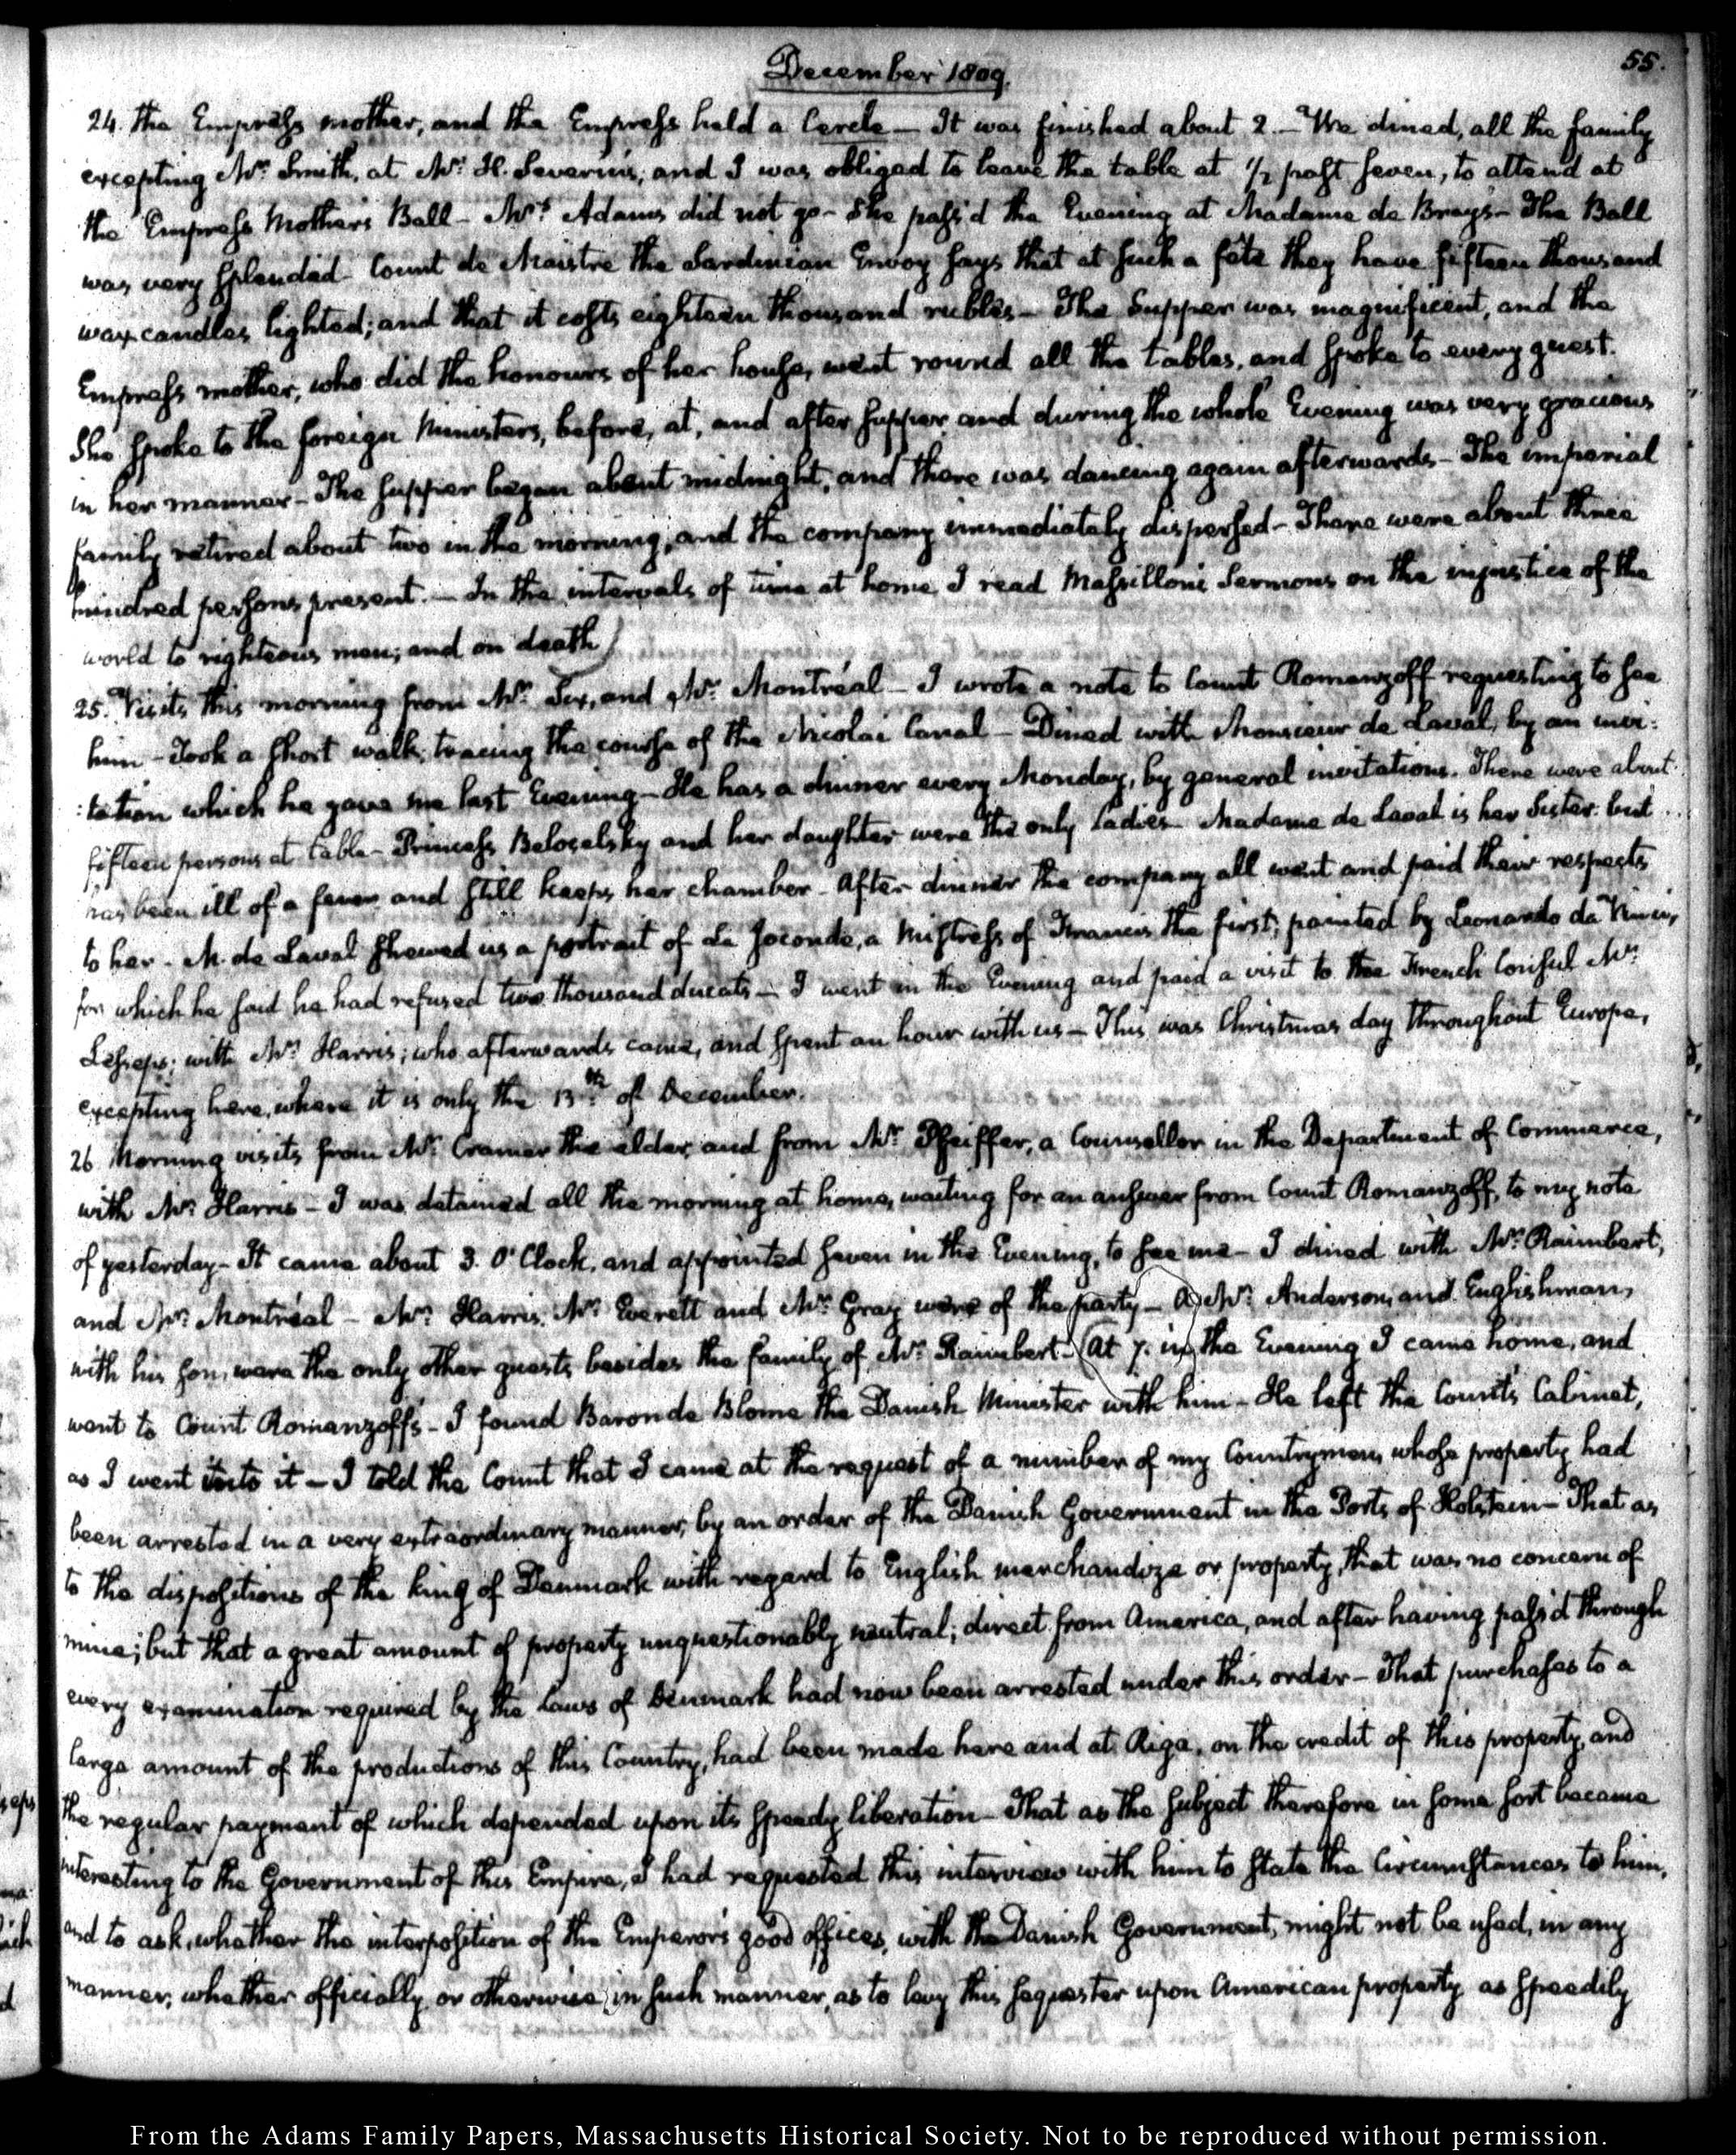 December 1809.
55.
24. the Empress mother, and the Empress held a Cercle — It was finished about 2. — We dined, all the family
excepting Mr. Smith, at Mr. H. Severin's, and I was obliged to leave the table at 1/2 past seven, to attend at
the Empress Mother's Ball — Mrs. Adams did not go — She pass'd the Evening at Madame de Bray's — The Ball
was very splendid — Count de Maistre the Sardinian Envoy says that at such a fête they have fifteen thousand
wax candles lighted; and that it costs eighteen thousand rubles — The Supper was magnificent, and the
Empress mother, who did the honours of her house, went round all the tables, and spoke to every guest.
She spoke to the foreign Ministers, before, at, and after supper and during the whole Evening was very gracious
in her manner — The supper began about midnight, and there was dancing again afterwards — The imperial
family retired about two in the morning, and the company immediately dispersed — There were about three
hundred persons present. — In the intervals of time at home I read Massillon's Sermons on the injustice of the
world to righteous men; and on death.
25. Visits this morning from Mr. Six, and Mr. Montréal — I wrote a note to Count Romanzoff requesting to see
him — Took a short walk, tracing the course of the Nicolai Canal — Dined with Monsieur de Laval, by an invi:
:tation which he gave me last Evening — He has a dinner every Monday, by general invitations. There were about
fifteen persons at table — Princess Beloselsky and her daughter were the only Ladies — Madame de Laval is her Sister but
has been ill of a fever and still keeps her chamber — After dinner the company all went and paid their respects
to her — M. de Laval shewed us a portrait of La Joconde, a Mistress of Francis the first, painted by Leonardo da Vinci,
for which he said he had refused two thousand ducats — I went in the Evening and paid a visit to the French Consul Mr.
Lesseps; with Mr. Harris; who afterwards came, and spent an hour with us — This was Christmas day throughout Europe,
excepting here, where it is only the 13th. of December.
26. Morning visits from Mr. Cramer the elder, and from Mr. Pfeiffer, a Counsellor in the Department of Commerce,
with Mr. Harris — I was detained all the morning at home, waiting for an answer from Count Romanzoff, to my note
of yesterday — It came about 3. O'Clock, and appointed seven in the Evening, to see me — I dined with Mr. Raimbert,
and Mr. Montréal — Mr. Harris, Mr. Everett and Mr. Gray were of the party — A Mr. Anderson, and Englishman,
with his son, were the only other guests besides the family of Mr. Raimbert — At 7. in the Evening I came home, and
went to Count Romanzoff's — I found Baron de Blome the Danish Minister with him — He left the Count's Cabinet,
as I went into it — I told the Count that I came at the request of a number of my Countrymen, whose property had
been arrested in a very extraordinary manner, by an order of the Danish Government in the Ports of Holstein — That as
to the dispositions of the king of Denmark with regard to English merchandize or property, that was no concern of
mine; but that a great amount of property unquestionably neutral; direct from America, and after having pass'd through
every examination required by the Laws of Denmark had now been arrested under this order — That purchases to a
large amount of the productions of this Country, had been made here and at Riga, on the credit of this property, and
the regular payment of which depended upon its speedy liberation — That as the subject therefore in some sort became
interesting to the Government of this Empire, I had requested this interview with him to state the Circumstances to him,
and to ask, whether the interposition of the Emperor's good offices, with the Danish Government, might not be used, in any
manner, whether officially or otherwise, in such manner, as to levy this sequester upon American property as speedily
From the Adams Family Papers, Massachusetts Historical Society. Not to be reproduced without permission.